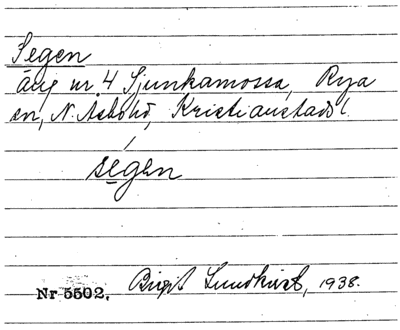 Segen
äng nr. 4 Sjunkamossa, Rya
sn, N. Åsbohd, Kristianstads l.
sęgen
Nr 5502. Birgit Lundkvist, 1938.